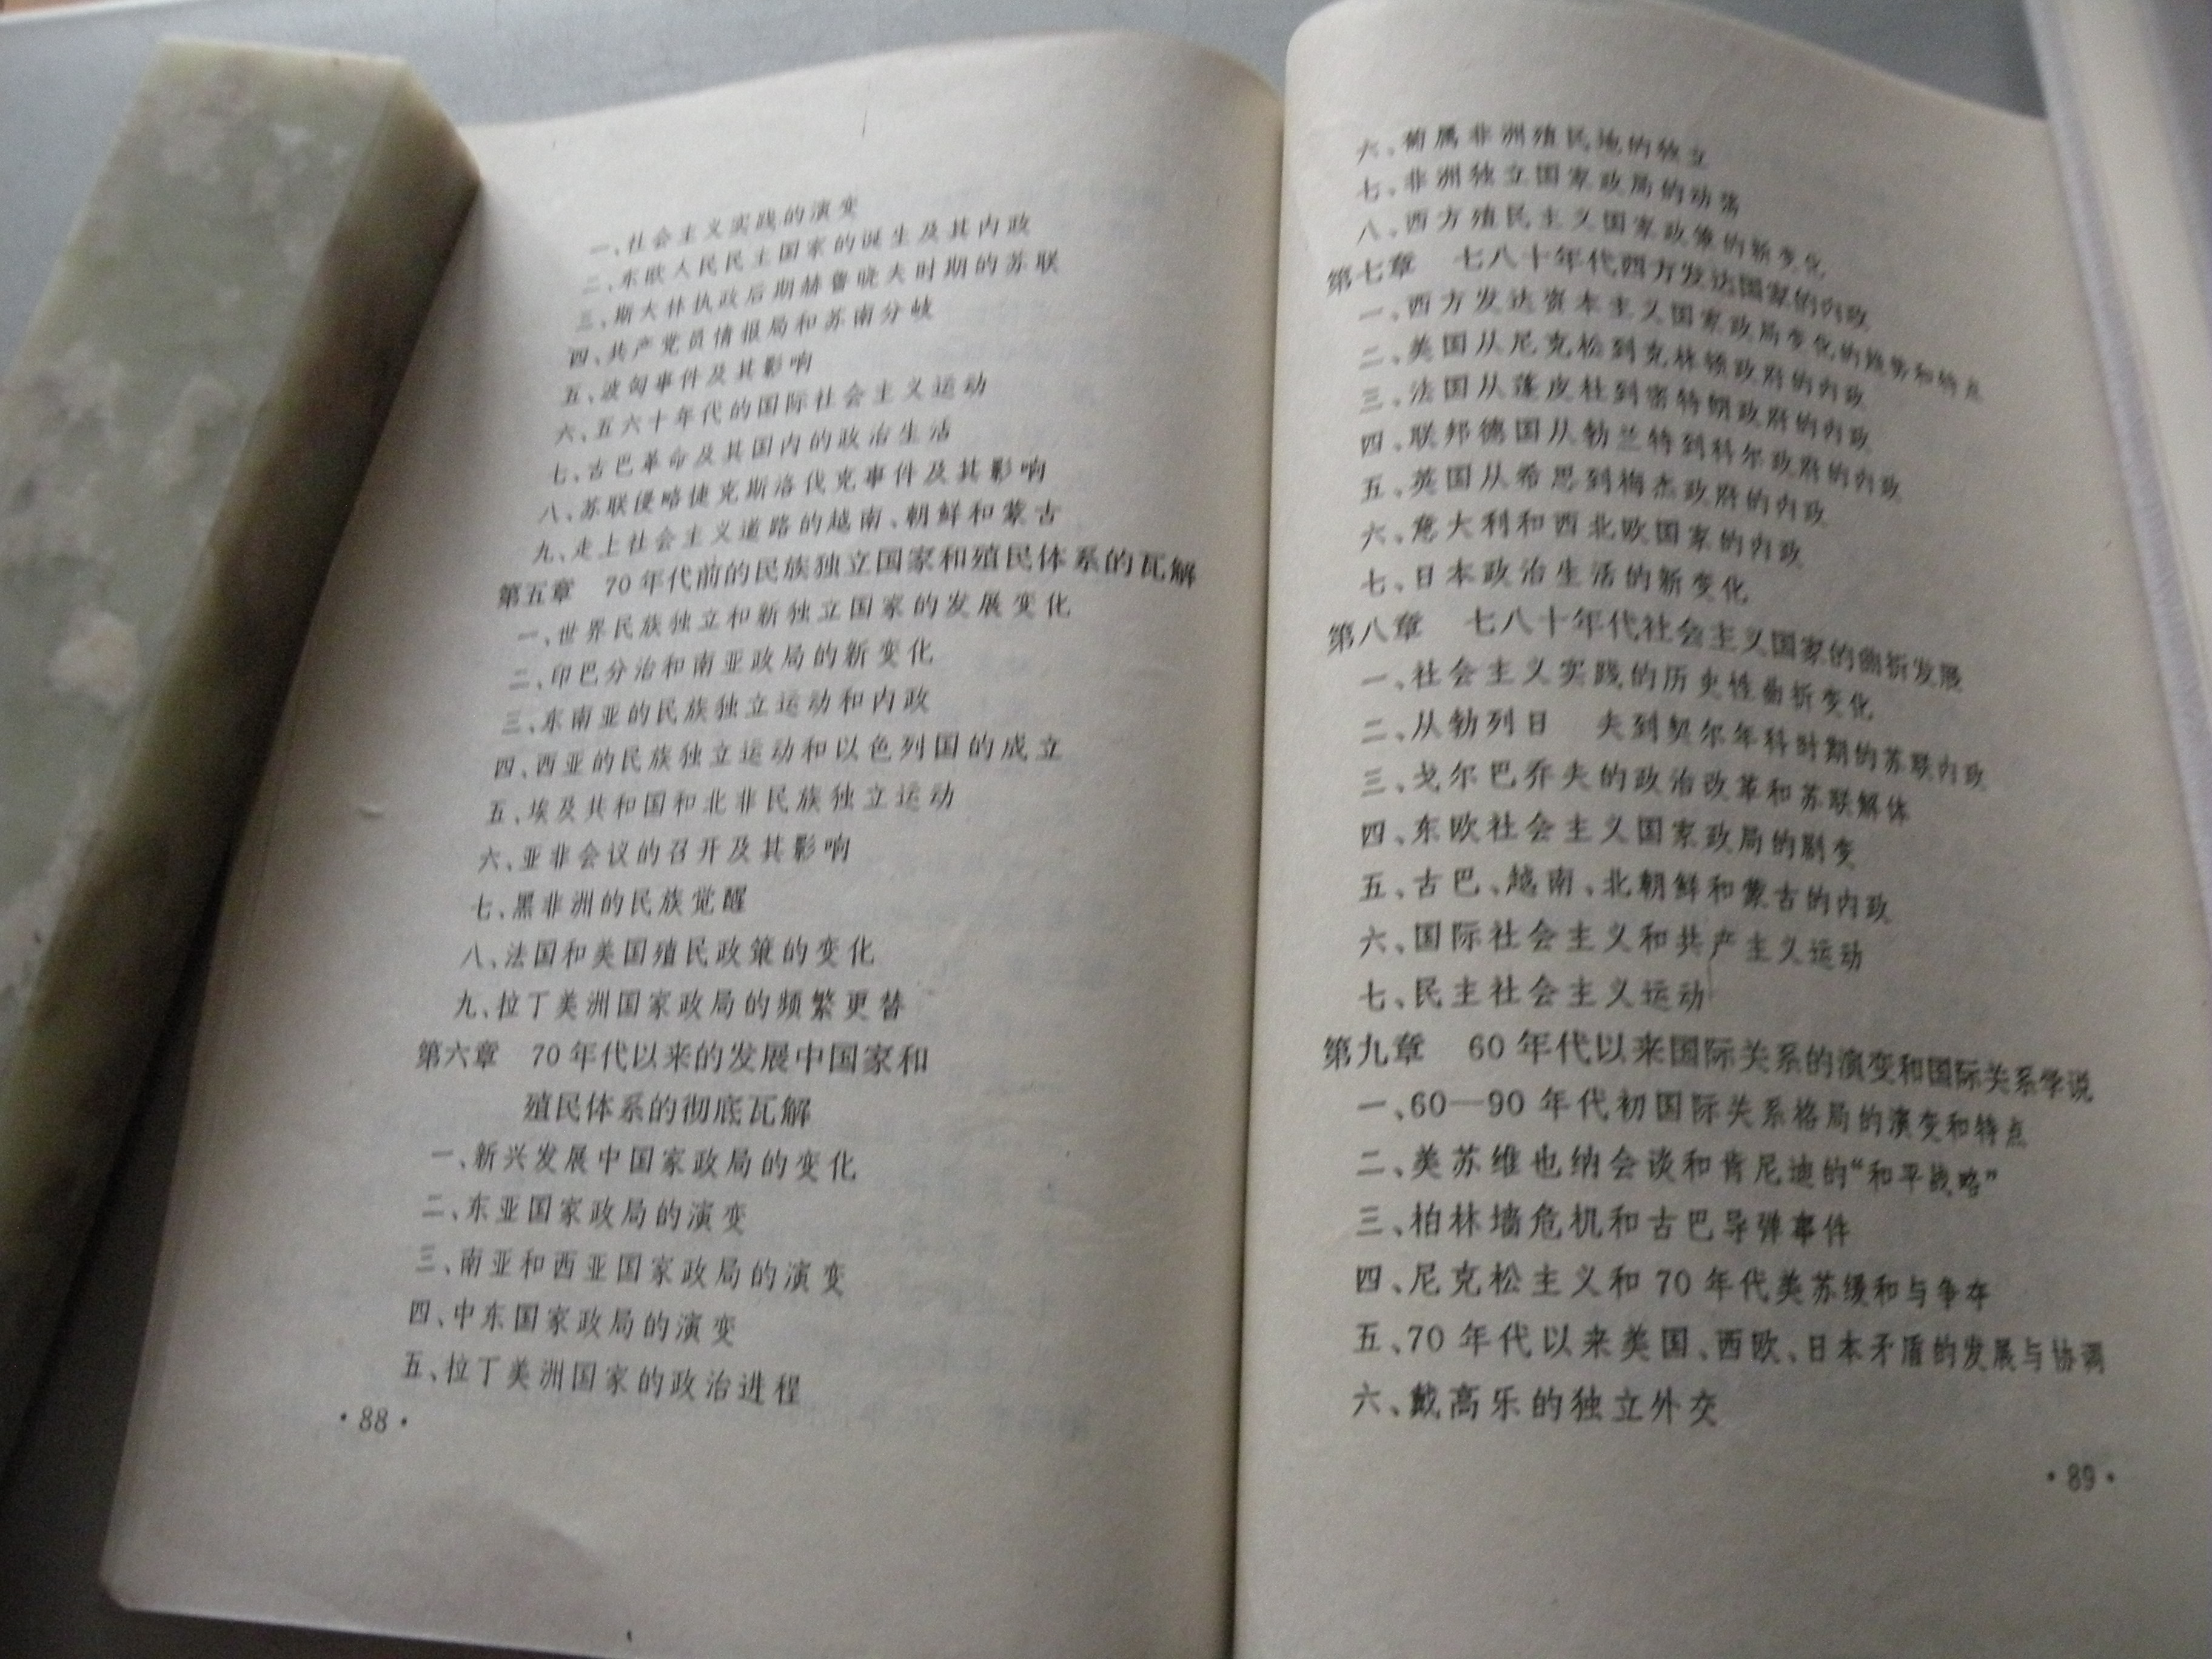 一、社会主义实践的演变
二、东欧人民民主国家的诞生及其内政
三、斯大林执政后期赫鲁晓夫时期的苏联
四、共产党员情报局和苏南分岐
五、波匈事件及其影响
六、五六十年代的国际社会主义运动
七、古巴革命及其国内的政治生活
八、苏联侵略捷克斯洛伐克事件及其影响
九、走上社会主义道路的越南、朝鲜和蒙古
第五章 70年代前的民族独立国家和殖民体系的瓦解
一、世界民族独立和新独立国家的发展变化
二、印巴分治和南亚政局的新变化
三、东南亚的民族独立运动和内政
四、西亚的民族独立运动和以色列国的成立
五、埃及共和国和北非民族独立运动
六、亚非会议的召开及其影响
七、黑非洲的民族觉醒
八、法国和美国殖民政策的变化
九、拉丁美洲国家政局的频繁更替
第六章 70年代以来的发展中国家和
殖民体系的彻底瓦解
一、新兴发展中国家政局的变化
二、东亚国家政局的演变
三、南亚和西亚国家政局的演变
四、中东国家政局的演变
五、拉丁美洲国家的政治进程
·88·
六、葡属非洲殖民地的独立
七、非洲独立国家政局的动荡
八、西方殖民主义国家政策的新变化
第七章 七八十年代西方发达国家的内政
一、西方发达资本主义国家政局变化的趋势和特点
二、美国从尼克松到克林顿政府的内政
三、法国从蓬皮杜到密特朗政府的内政
四、联邦德国从勃兰特到科尔政府的内政
五、英国从希思到梅杰政府的内政
六、意大利和西北欧国家的内政
七、日本政治生活的新变化
第八章 七八十年代社会主义国家的曲折发展
一、社会主义实践的历史性曲折变化
二、从勃列日 夫到契尔年科时期的苏联内政
三、戈尔巴乔夫的政治改革和苏联解体
四、东欧社会主义国家政局的剧变
五、古巴、越南、北朝鲜和蒙古的内政
六、国际社会主义和共产主义运动
七、民主社会主义运动
第九章 60年代以来国际关系的演变和国际关系学说
一、60—90年代初国际关系格局的演变和特点
二、美苏维也纳会谈和肯尼迪的“和平战略”
三、柏林墙危机和古巴导弹事件
四、尼克松主义和70年代美苏缓和与争夺
五、70年代以来美国、西欧、日本矛盾的发展与协调
六、戴高乐的独立外交
·89·